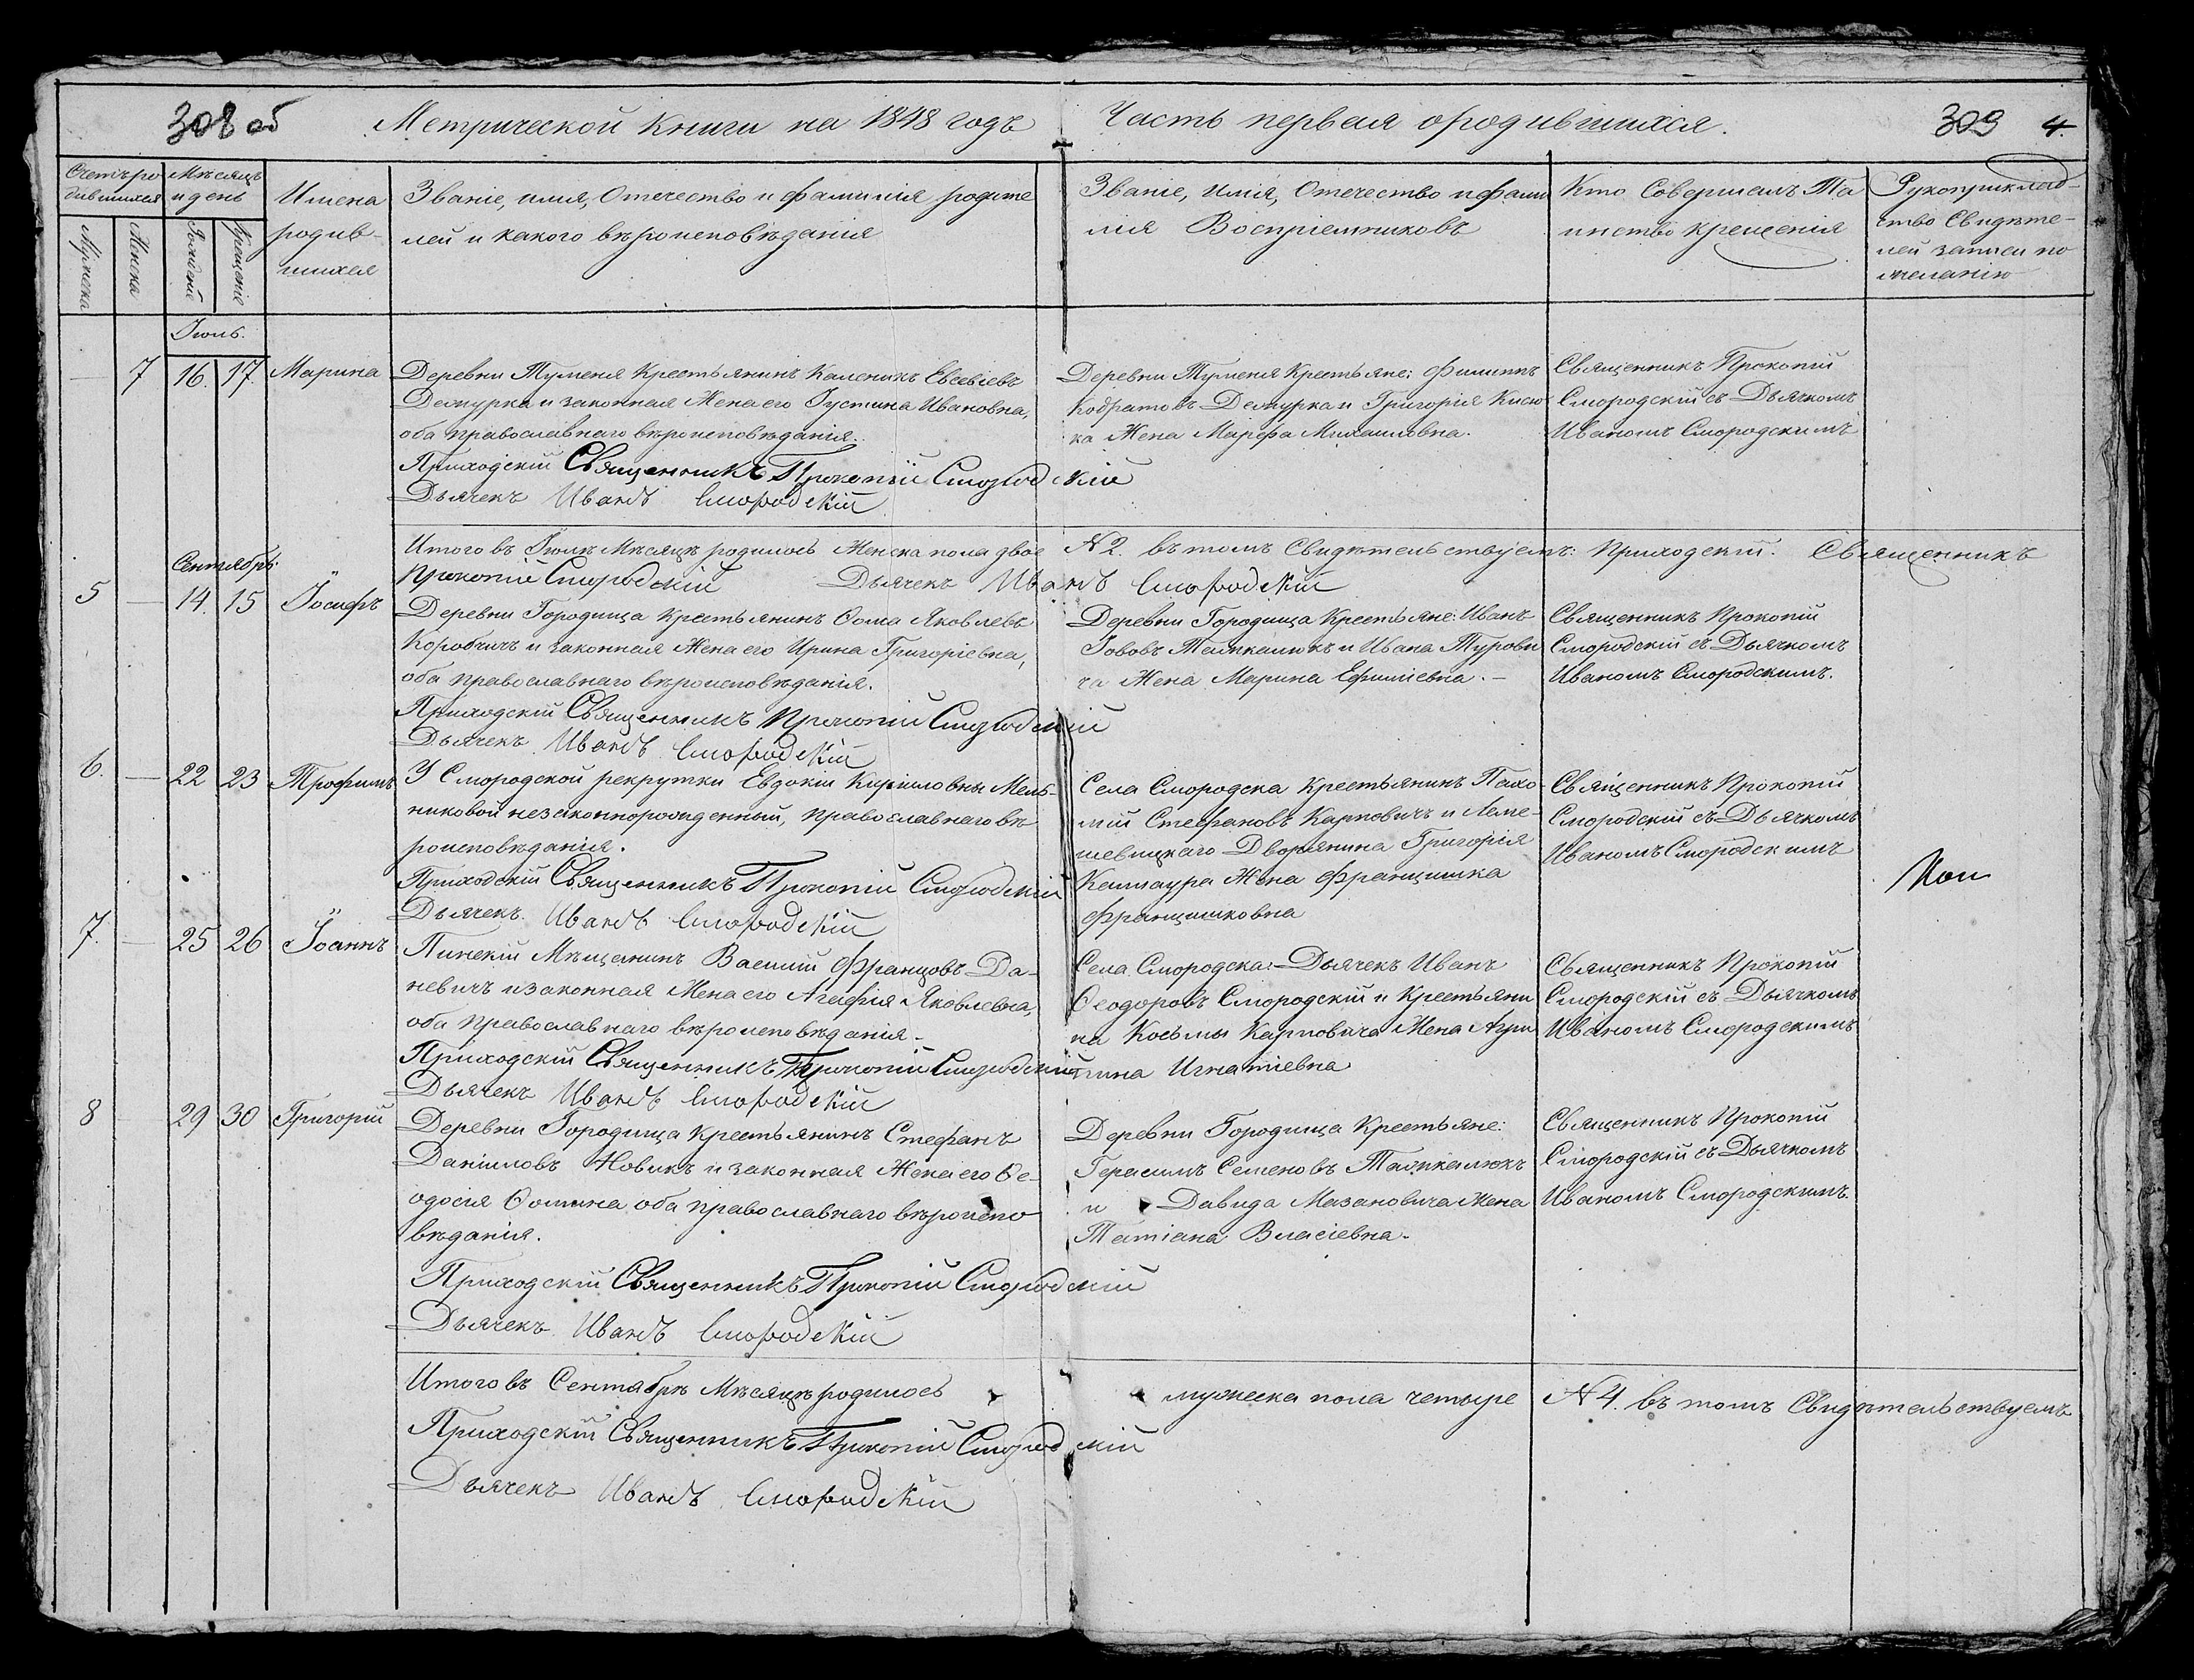 308 об Метрической Книги на 1848 годъ Часть первая о родившихся. 309 4.
Счетъ ро Мѣсяцъ
дившихся и день
Мужеска Женска Рожденіе Крещеніе
Имена
родив-
шихся
Званіе, имя, Отечество и фамилія родите
лей и какого вѣроисповѣданія
Званіе, имя, Отечество и фами
лія Воспріемниковъ
Кто Совершалъ Та
инство крещенія
Рукоприклад-
ство Свидѣте-
лей записи по
желанію
Іюль.
— 7 16. 17. Марина
Деревни Туменя Крестьянинъ Каленикъ Евсевіевъ
Демурка и законная Жена его Іустина Ивановна,
оба православнаго вѣроисповѣданія.
Приходскій Священникъ Прокопій Смородскій
Дьячекъ Иванъ Смородскій
Деревни Туменя Крестьяне: Филиппъ
Кодратовъ Демурка и Григорія Кисю
ка Жена Марфа Михаиловна.
Священникъ Прокопій
Смородскій съ Дьячкомъ
Иваномъ Смородскимъ
Итого въ Іюлѣ Мѣсяцѣ родилось Женска пола двое № 2. въ томъ Свидѣтельствуемъ: Приходскій. Священникъ
Прокопій Смородскій Дьячекъ Иванъ Смородскій
Сентябрь.
5 — 14. 15 Іосифъ
Деревни Городища Крестьянинъ Ѳома Яковлевъ
Коробчичъ и законная Жена его Ирина Григоріевна,
оба православнаго вѣроисповѣданія.
Приходскій Священникъ Прокопій Смородскій
Дьячекъ Иванъ Смородскій
Деревни Городища Крестьяне: Иванъ
Іововъ и Ивана Турови
ча Жена Марина Ефиміевна. —
Священникъ Прокопій
Смородскій съ Дьячкомъ
Иваномъ Смородскимъ.
6. — 22 23 Трофимъ
У Смородской рекрутки Евдокіи Кириловны Мель-
никовой незаконнорожденный, православнаго вѣ
роисповѣданія.
Приходскій Священникъ Прокопій Смородскій
Дьячекъ Иванъ Смородскій
Села Смородска Крестьянинъ Пахо-
мій Стефановъ Карповичъ и Леме-
шевицкаго Дворянина Григорія
Жена Францишка
Францишковна
Священникъ Прокопій
Смородскій съ Дьячкомъ
Иваномъ Смородскимъ
Коп
7. — 25 26 Іоаннъ
Пинскій Мѣщанинъ Василій Францовъ Да-
невичъ и законная Жена его Агафія Яковлевна,
оба православнаго вѣроисповѣданія.
Приходскій Священникъ Прокопій Смородскій
Дьячекъ Иванъ Смородскій
Села Смородска: Дьячекъ Иванъ
Ѳеодоровъ Смородскій и Крестьяни
на Косьмы Карповича Жена Агри
пина Игнатіевна
Священникъ Прокопій
Смородскій съ Дьячкомъ
Иваномъ Смородскимъ
8 29 30 Григорій
Деревни Городища Крестьянинъ Стефанъ
Даніиловъ Новикъ и законная Жена его Ѳе-
одосія Ѳомина оба православнаго вѣроиспо
вѣданія.
Приходскій Священникъ Прокопій Смородскій
Дьячекъ Иванъ Смородскій
Деревни Городища Крестьяне:
Герасимъ Семеновъ
и Давида Мазановича Жена
Татіана Власіевна.
Священникъ Прокопій
Смородскій съ Дьячкомъ
Иваномъ Смородскимъ.
Итого въ Сентябрѣ Мѣсяцѣ родилось мужеска пола четыре № 4. въ томъ Свидѣтельствуемъ
Приходскій Священникъ Прокопій Смородскій
Дьячекъ Иванъ Смородскій